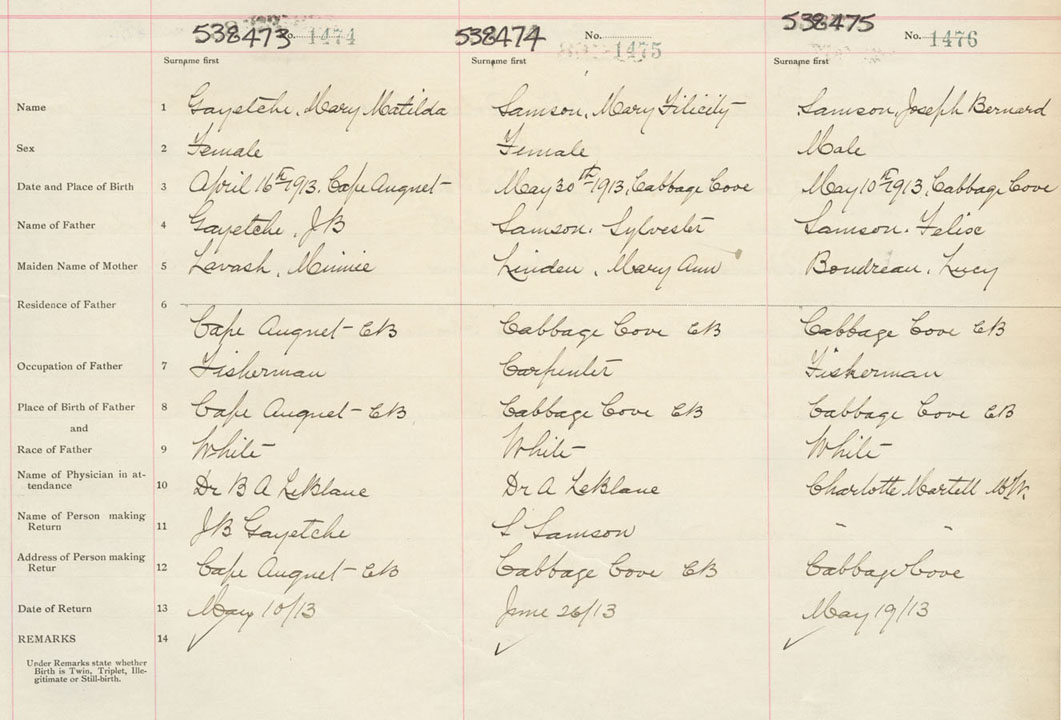 538473 No. 1474 538474 No. 1475 538475 No. 1476
Surname first Surname first Surname first
Name 1 Gayetche, Mary Matilda Samson, Mary Filicity Samson, Joseph Bernard
Sex 2 Female Female Male
Date and Place of Birth 3 April 16th 1913, Cape Auguet May 30th 1913, Cabbage Cove May 10th 1913, Cabbage Cove
Name of Father 4 Gayetche, JB Samson, Sylvester Samson, Felix
Maiden Name of Mother 5 Lavash, Minnie Linden, Mary Ann Boudreau, Lucy
Residence of Father 6
Cape Auguet CB Cabbage Cove CB Cabbage Cove CB
Occupation of Father 7 Fisherman Carpenter Fisherman
Place of Birth of Father 8 Cape Auguet CB Cabbage Cove CB Cabbage Cove CB
and
Race of Father 9 White White White
Name of Physician in at-
tendance 10 Dr B A LeBlanc Dr A LeBlanc Charlotte Martell M.W.
Name of Person making
Return 11 JB Gayetche S Samson " "
Address of Person making
Retur 12 Cape Auguet CB Cabbage Cove CB Cabbage Cove
Date of Return 13 May 10/13 June 26/13 May 19/13
REMARKS 14
Under Remarks state whether
Birth is Twin, Triplet, Ille-
gitimate or Still-birth.